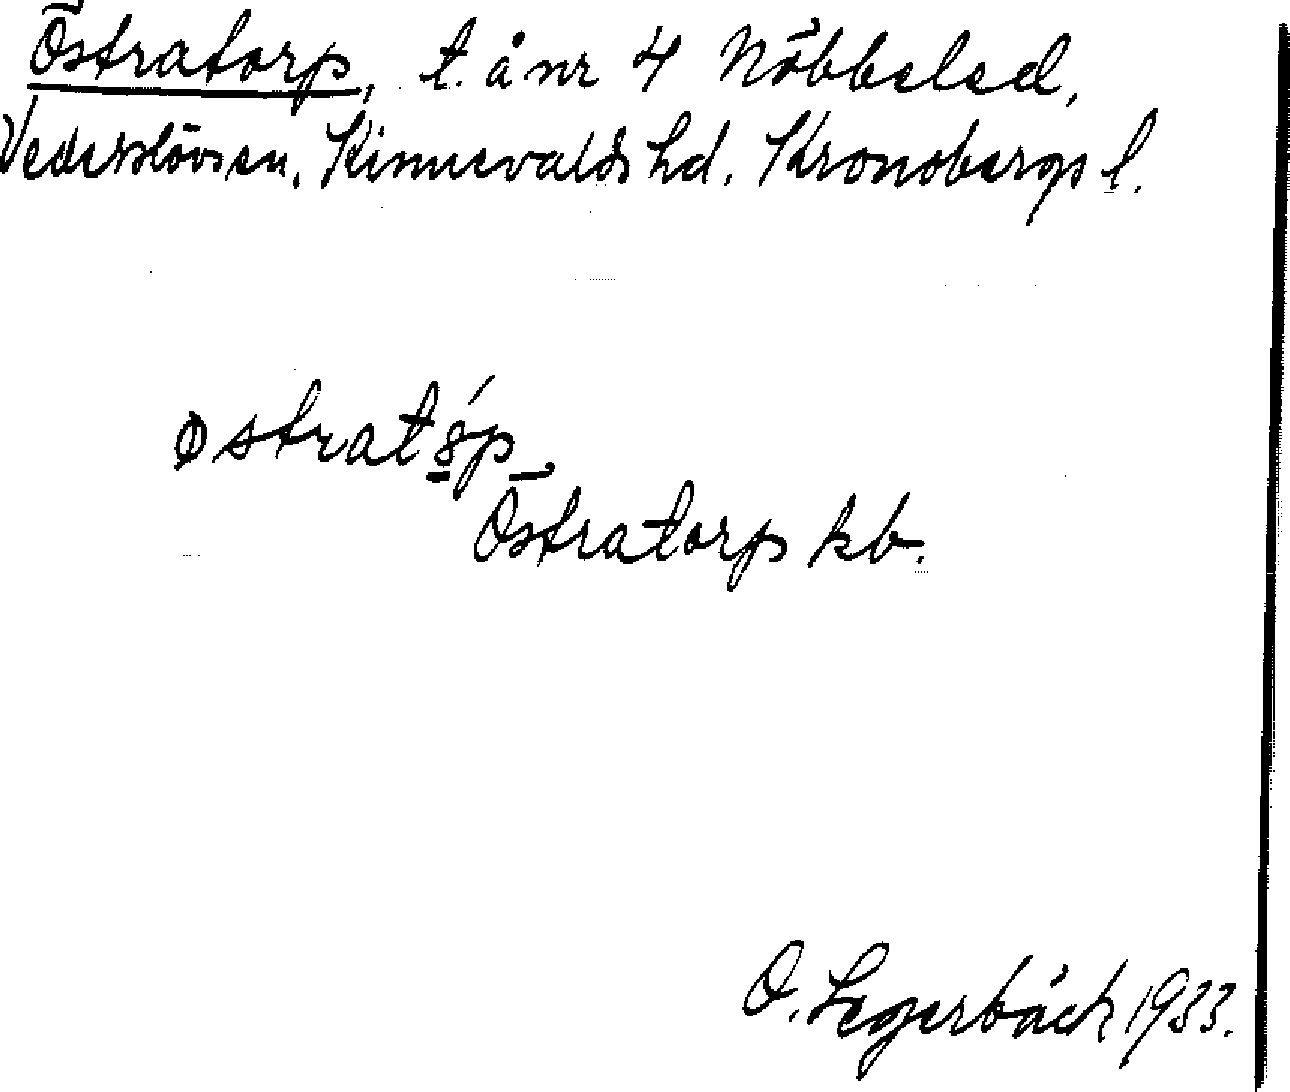 Östratorp, t. å nr 4 Nöbbeled,
Vederslövs sn, Kinnevalds hd, Kronobergs l.
østratǿp
Östratorp kb.
O. Legerbäck 1933.